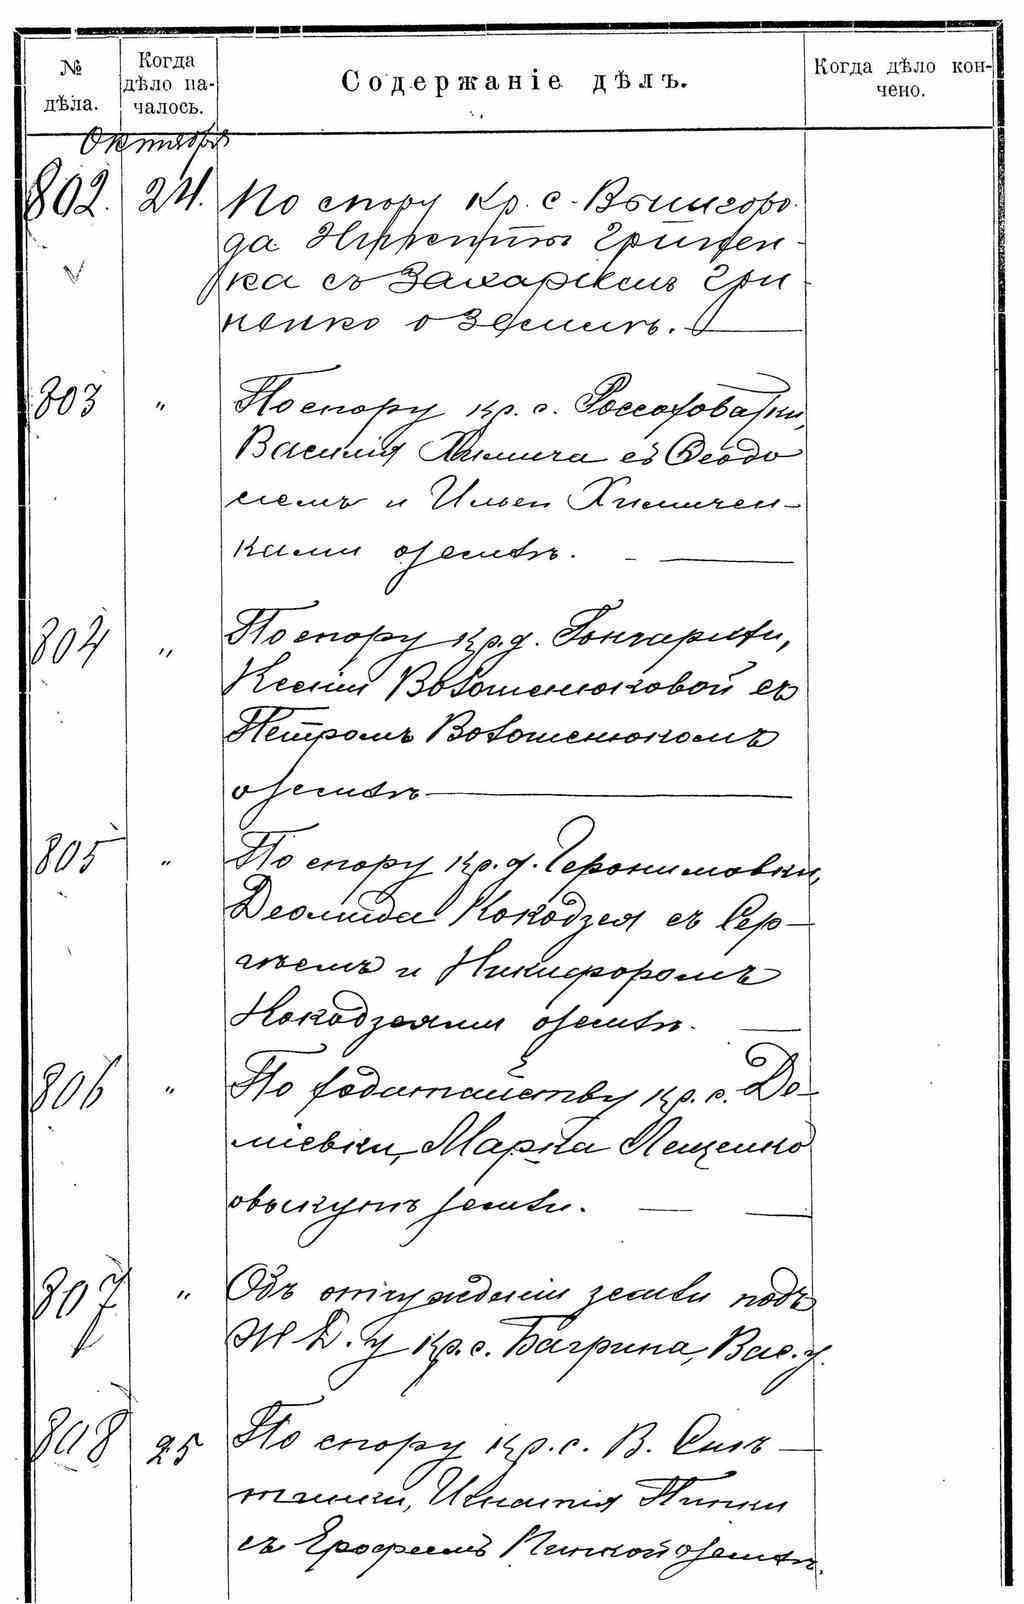 № дѣла.
Когда дѣло началось.
Содержаніе дѣлъ.
Когда дѣло кончено.
Октября
802. 24. По спору кр. с. Вышгоро-
да Никиты Гринен-
ка съ Захаріемъ Гри
ненко о землѣ.
803 " По спору кр. с. Россоховатки,
Василія Химича съ Ѳеодо
сіемъ и Ильей Химичен-
ками о землѣ.
804 " По спору кр. д. Гончарихи,
Ксеніи Волошенюковой съ
Петромъ Волошенюкомъ
о землѣ
805 " По спору кр. д. Геронимовки,
Деомида Кокодзея съ Сер-
гѣемъ и Никифоромъ
Кокодзеями о землѣ.
806 " По ходатайству кр. с. Де-
міевки, Марка Лещенко
о выкупѣ земли.
807 " Объ отчужденіи земли подъ
Ж Д. у кр. с. Багрина, Вас. у.
808 25 По спору кр. с. В. Снѣ-
тинки, Игнатія Пинки
съ Ерофеемъ Пинкой о землѣ.